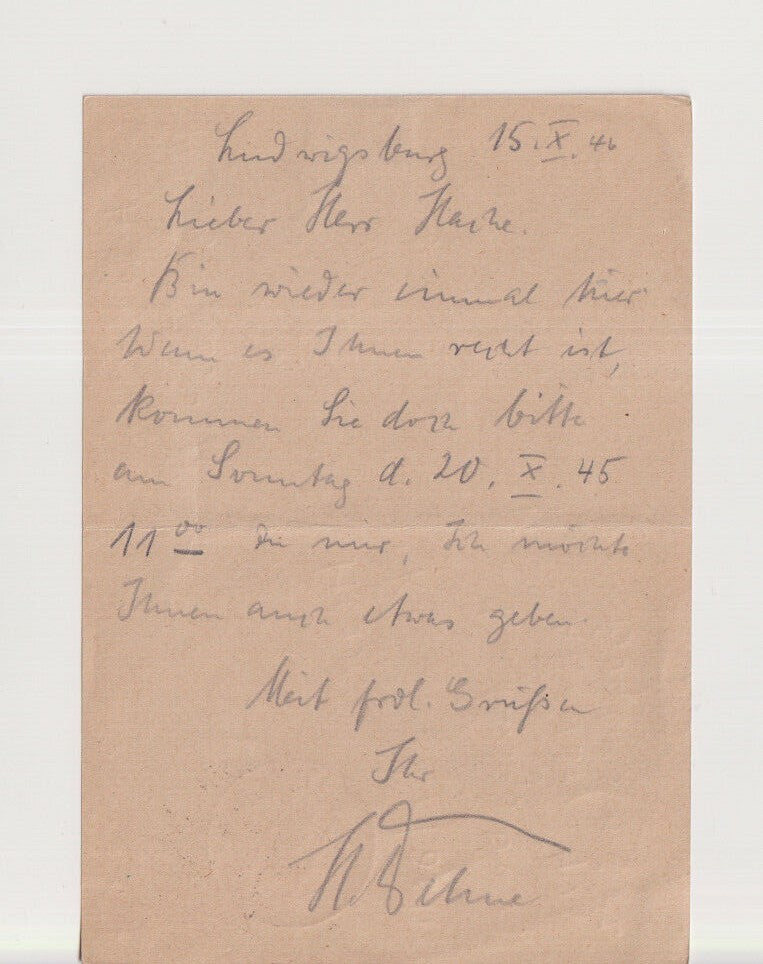 Ludwigsburg 15.X.46
Lieber Herr Stache.
Bin wieder einmal hier
Wenn es Ihnen recht ist,
kommen Sie doch bitte
am Sonntag d. 20. X. 45
11 00 zu mir, Ich möchte
Ihnen auch etwas geben.
Mit frdl. Grüßen
Ihr